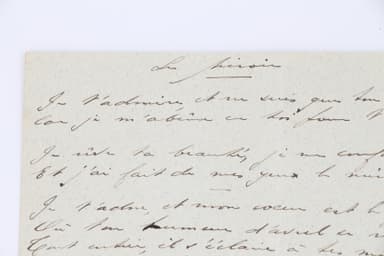 Le Miroir
Je t'admire, et ne suis que ton
Car je m'abîme en toi pour t
Je rêve ta beauté, je me conf
Et j'ai fait de mes yeux le mir
Je t'adore, et mon cœur est l
Où ton humeur d'avril se
Tout entier, il s'éclaire à tes m